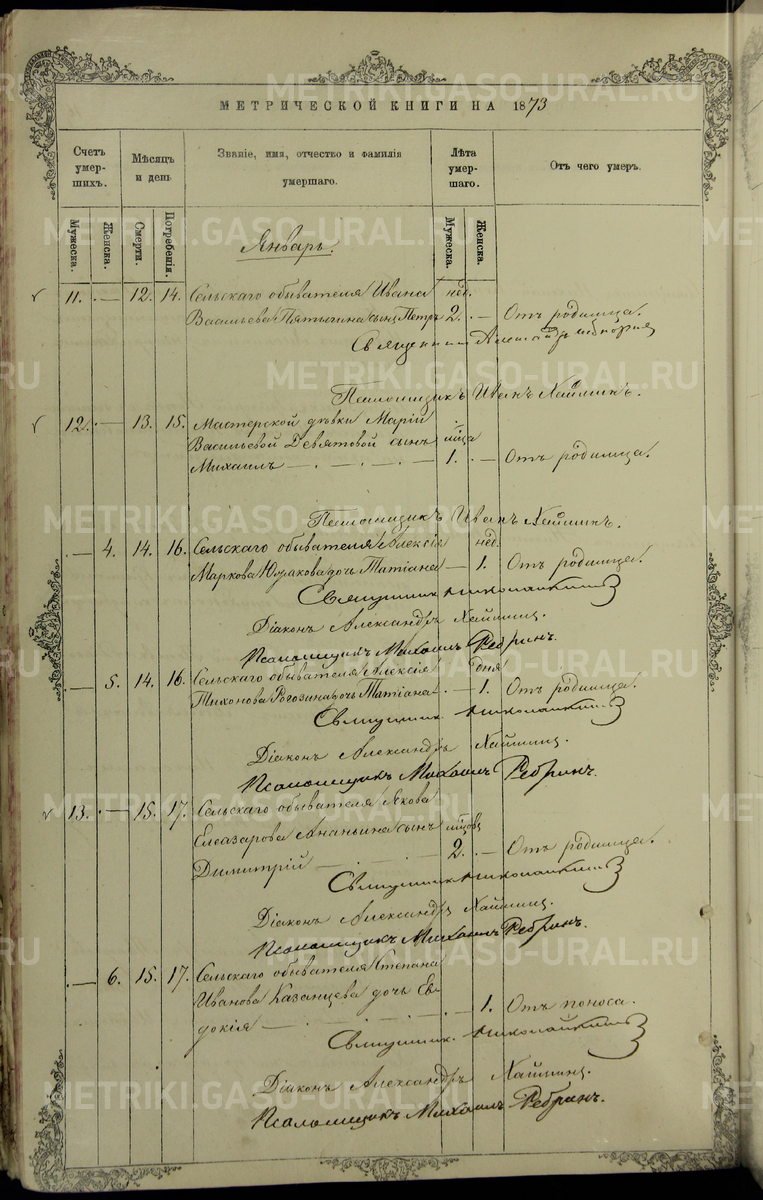 METRIKI.GASO-URAL.RU
МЕТРИЧЕСКОЙ КНИГИ НА 1873
Счетъ умер-шихъ.
Мѣсяцъ и день
Званіе, имя, отчество и фамилія умершаго.
Лѣта умер-шаго.
Отъ чего умеръ.
Мужеска.
Женска.
Смерти.
Погребенія.
Мужеска.
Женска.
Январь.
11. — 12. 14. Сельскаго обывателя Ивана нед.
Васильева сынъ Петръ 2. — Отъ родимца.
Священникъ
Псаломщикъ Иванъ
12. — 13. 15. Мастерской дѣвки Маріи
Васильевой Девятовой сынъ мѣсяца
Михаилъ — 1. — Отъ родимца.
Псаломщикъ Иванъ
— 4. 14. 16. Сельскаго обывателя Алексія нед.
Маркова дочь Татіана — 1. Отъ родимца.
Священникъ
Діаконъ Александръ
Псаломщикъ Михаилъ Ребринъ.
— 5. 14. 16. Сельскаго обывателя Алексія дня
Тихонова Рогозина дочь Татіана — 1. Отъ родимца.
Священникъ
Діаконъ Александръ
Псаломщикъ Михаилъ Ребринъ.
13. — 15. 17. Сельскаго обывателя Якова
Елеазарова Ананьина сынъ
Димитрій — 2. — Отъ родимца.
Священникъ
Діаконъ Александръ
Псаломщикъ Михаилъ Ребринъ.
— 6. 15. 17. Сельскаго обывателя Степана
Иванова Казанцева дочь Ев-
докія — 1. Отъ поноса.
Священникъ
Діаконъ Александръ
Псаломщикъ Михаилъ Ребринъ.